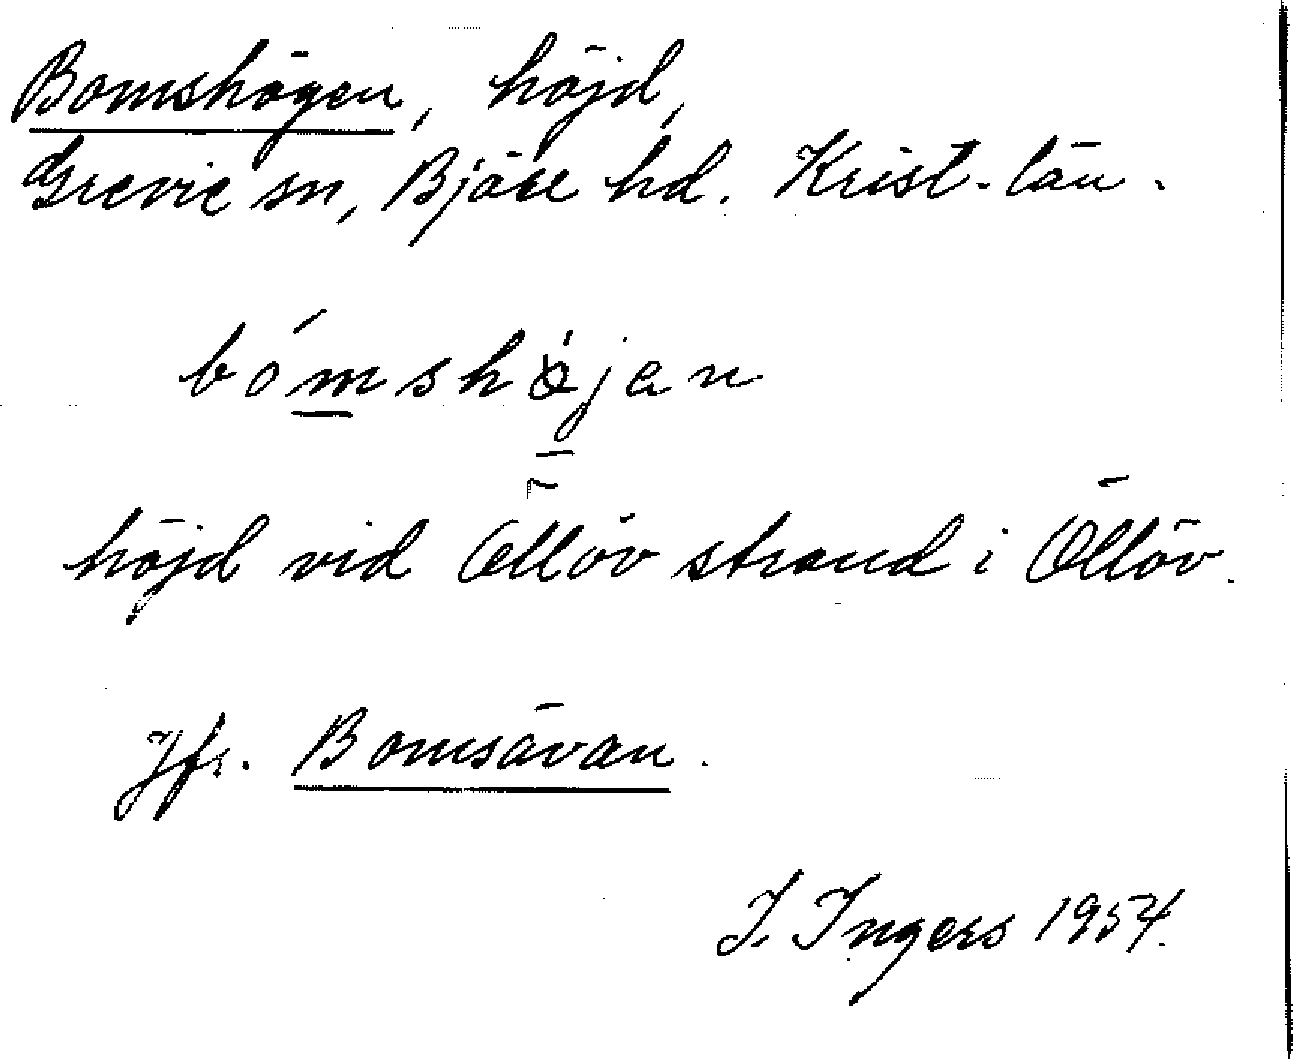 Bomshögen, höjd,
Grevie sn, Bjäre hd. Krist. län.
bómshöjan
höjd vid Öllöv strand i Öllöv.
Jfr. Bomsåvan.
I. Ingers 1954.